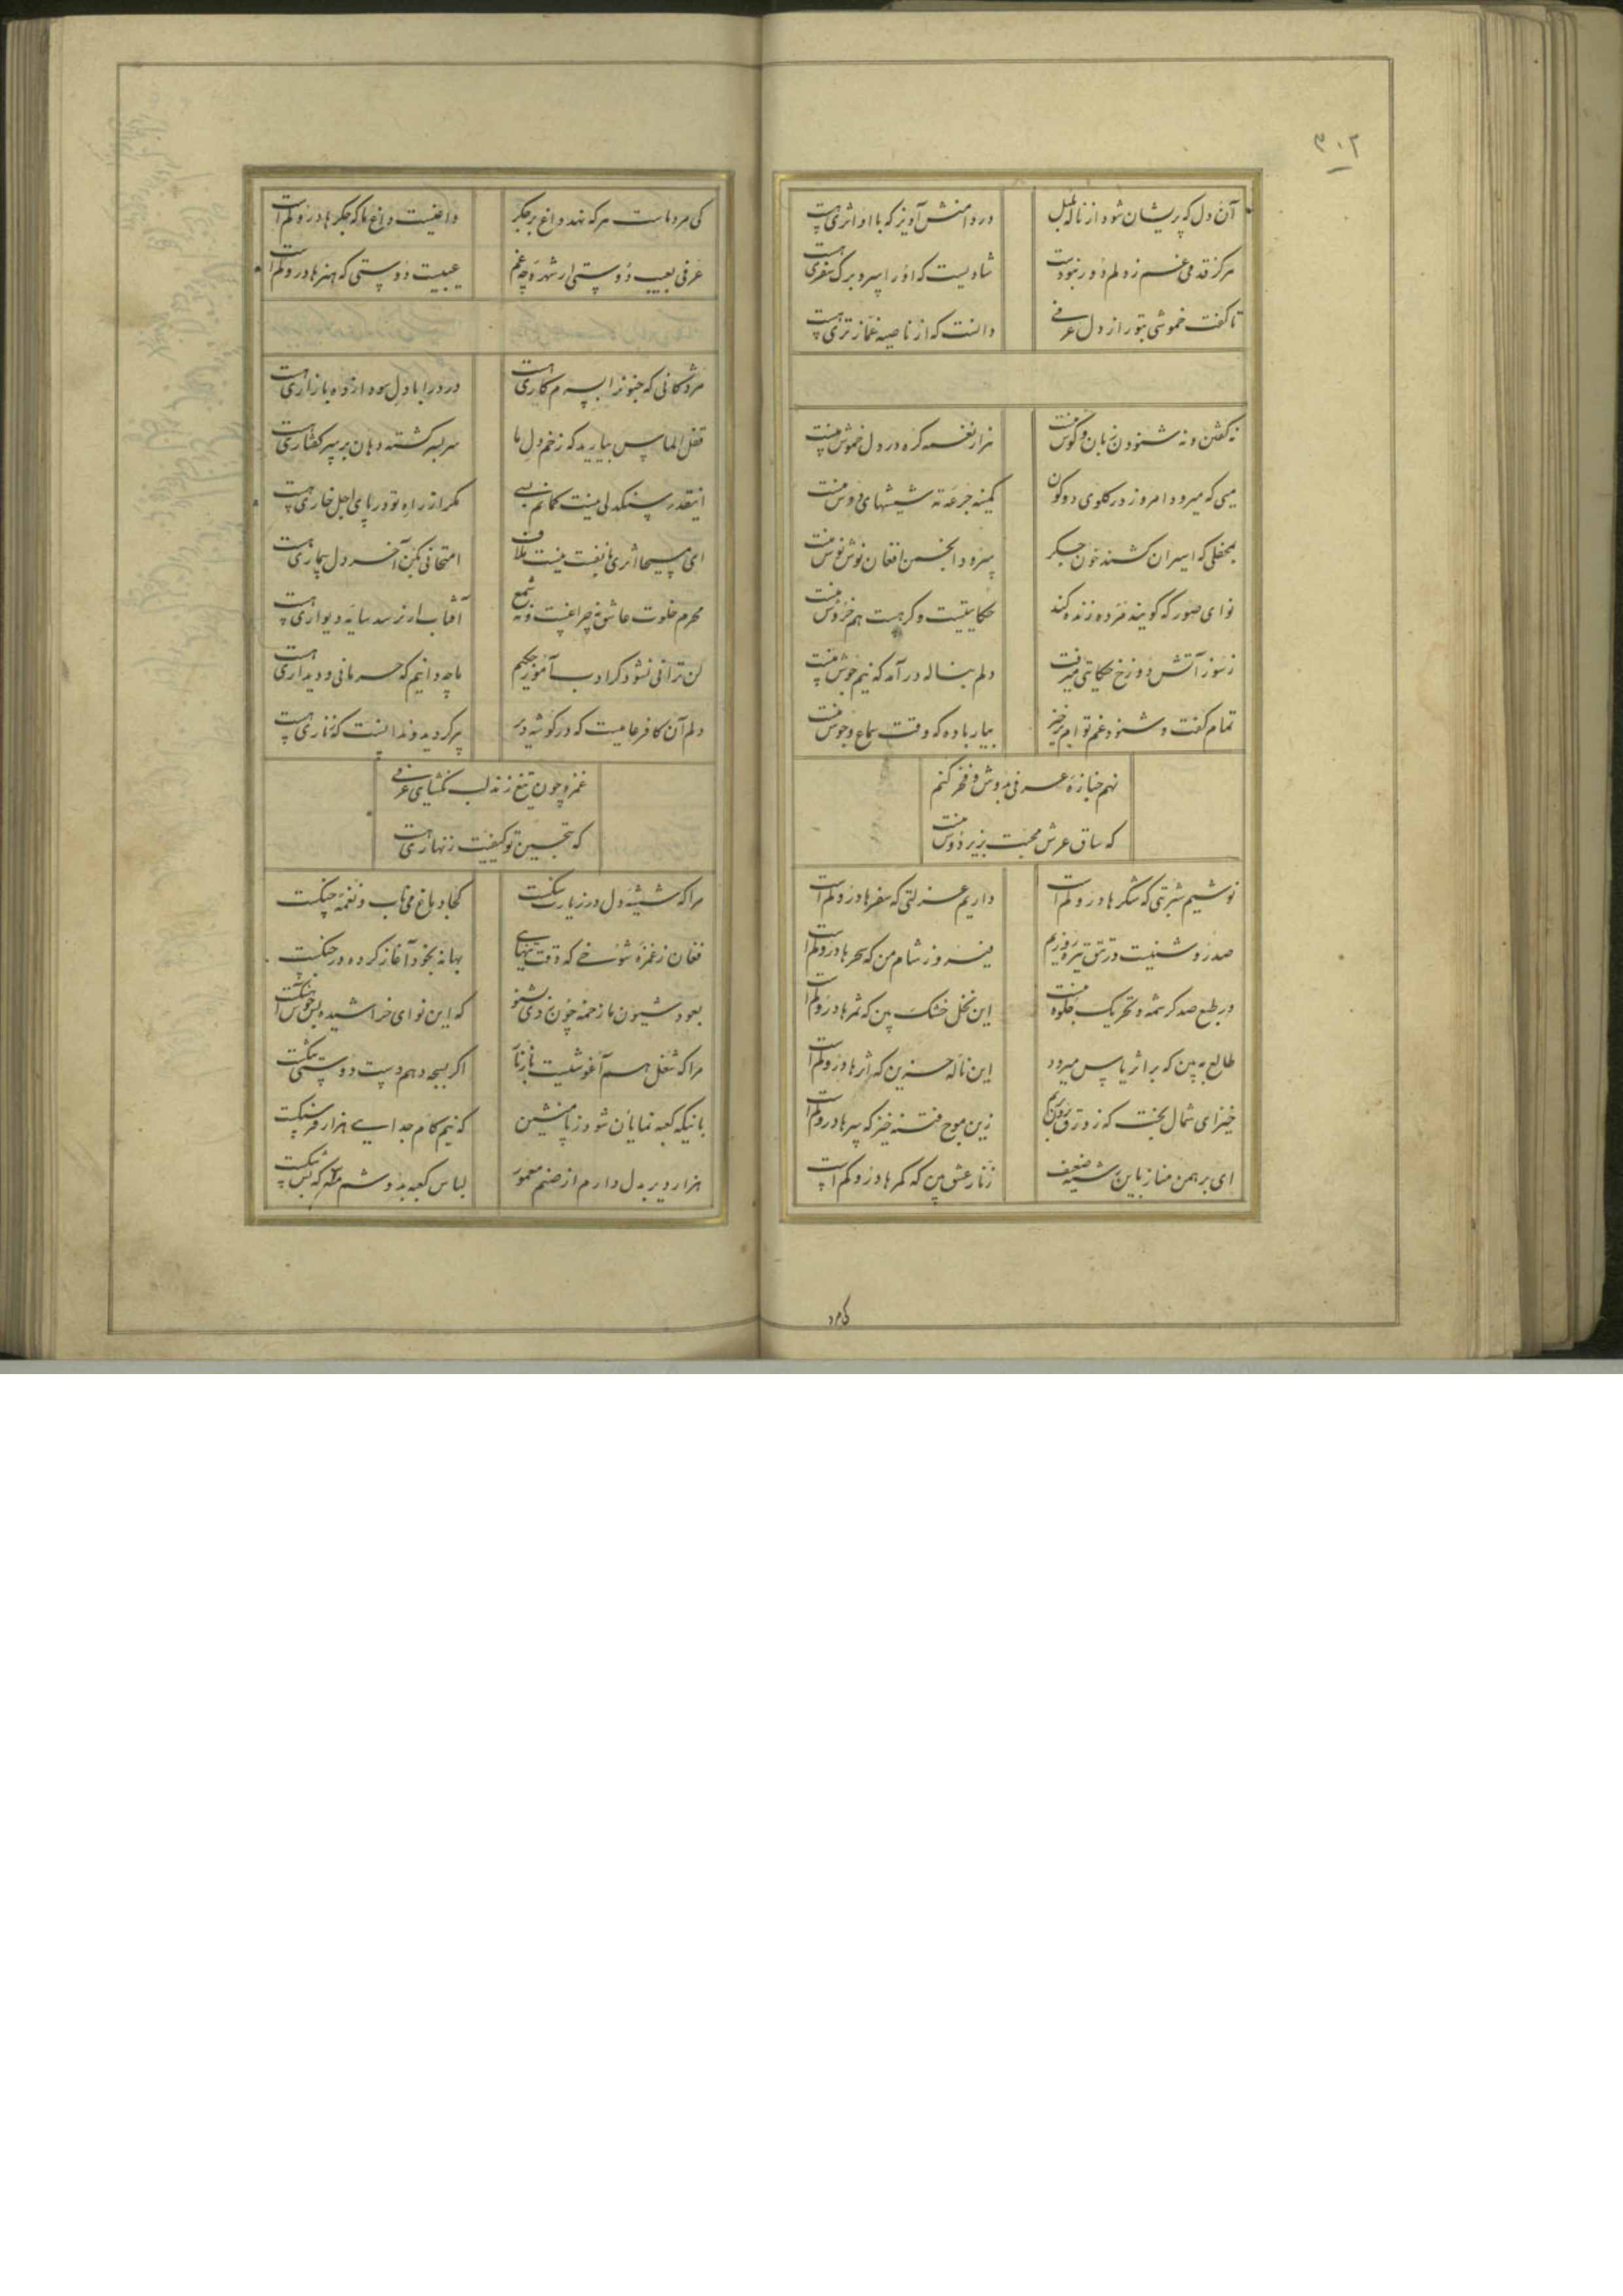 ۳۰۲
آن دل که پریشان شود از ناله بلبل
در دامنش آویز که با او اثری هست
هرکز قدمی غم ز دلم دور نبودست
شادیست که او را سر و برک سفری هست
تا کفت خموشی بتو راز دل عرفی
دانست که از ناصیه غمازتری هست
نه کفتن و نه شنودن زبان و کوش منست
هزار نغمه کره در دل خموش منست
میی که میرود امروز در کلوی دو کون
کمینه جرعه ته شیشهای دوش منست
بمحفلی که اسیران کشند خون جکر
سرود انجمن افغان نوش نوش منست
نوای صور که کویند مرده زنده کند
حکایتیست وکر هست هم خروش منست
ز سوز آتش دوزخ حکایتی میرفت
دلم بناله در آمد که نیم جوش منست
تمام کفت و شنود غم توایم خیز
بیار باده که وقت سماع و جوش منست
نهم جنازه عرفی بدوش و فخر کنم
که ساق عرش محبت بزیر دوش منست
نوشیم شربتی که شکرها درو کم است
داریم عزلتی که سفرها درو کم است
صد روشنیست در تتق تیره روزیم
فیروز شام من که سحرها درو کم است
در طبع صد کرشمه و تحریک جلوه نیست
این نخل خشک بین که ثمرها درو کم است
طالع به بین که بر اثر یاس میرود
این ناله حزین که اثرها درو کم است
خیز ای شمال بخت که زورق برون بریم
زین موج فتنه خیز که سرها درو کم است
ای برهمن مناز باین رشته ضعیف
زنار عشق بین که کمرها درو کم است
کی مرد
کی مرد ماست هر که نهد داغ بر جکر
داغیست داغ ما که جکرها درو کم است
عرفی بعیب دوستی ار شهره چه غم
عیبیست دوستی که هنرها درو کم است
مژدکانی که جنونرا بسرم کاری هست
درد را با دل سودازده بازاری هست
قفل الماس بیارید که زخم دل ما
سر بسر کشته دهان بر سر کفتاری هست
اینقدر سنکدلی نیست کمانم بسی
مکر از راه تو در پای اجل خاری هست
ای مسیحا اثری با نفست نیست ملاف
امتحانی بکن آخر دل بیماری هست
محرم خلوت عاشق نه چراغست و نه شمع
آفتاب ار نرسد سایه دیواری هست
لن ترانی نشود کر ادب آموز کلیم
ما چه دانیم که حرمانی و دیداری هست
دلم آن کافر عامیست که در کوشه دیر
پیر کردید و ندانست که زناری هست
غمزه چون تیغ زند لب نکشای عرفی
که بتحسین تو کیفیت زنهاری هست
مرا که شیشه دل در زیارت سنکست
کجا دماغ می ناب و نغمه چنکست
فغان ز غمزه شوخی که وقت تنهایی
بهانه بخود آغاز کرده در جنکست
بعود شیون ما زخمه چون زدی بشنو
که این نوای خراشیده بس خوش آهنکست
مرا که شغل هم آغوشیست با زنار
اکر بسبحه دهم دست دوستی ننکست
بانیکه کعبه نمایان شود ز پا منشین
که نیم کام جدایی هزار فرسنکست
هزار دیر بدل دارم از صنم معمور
لباس کعبه بدوشم منه که بس تنکست